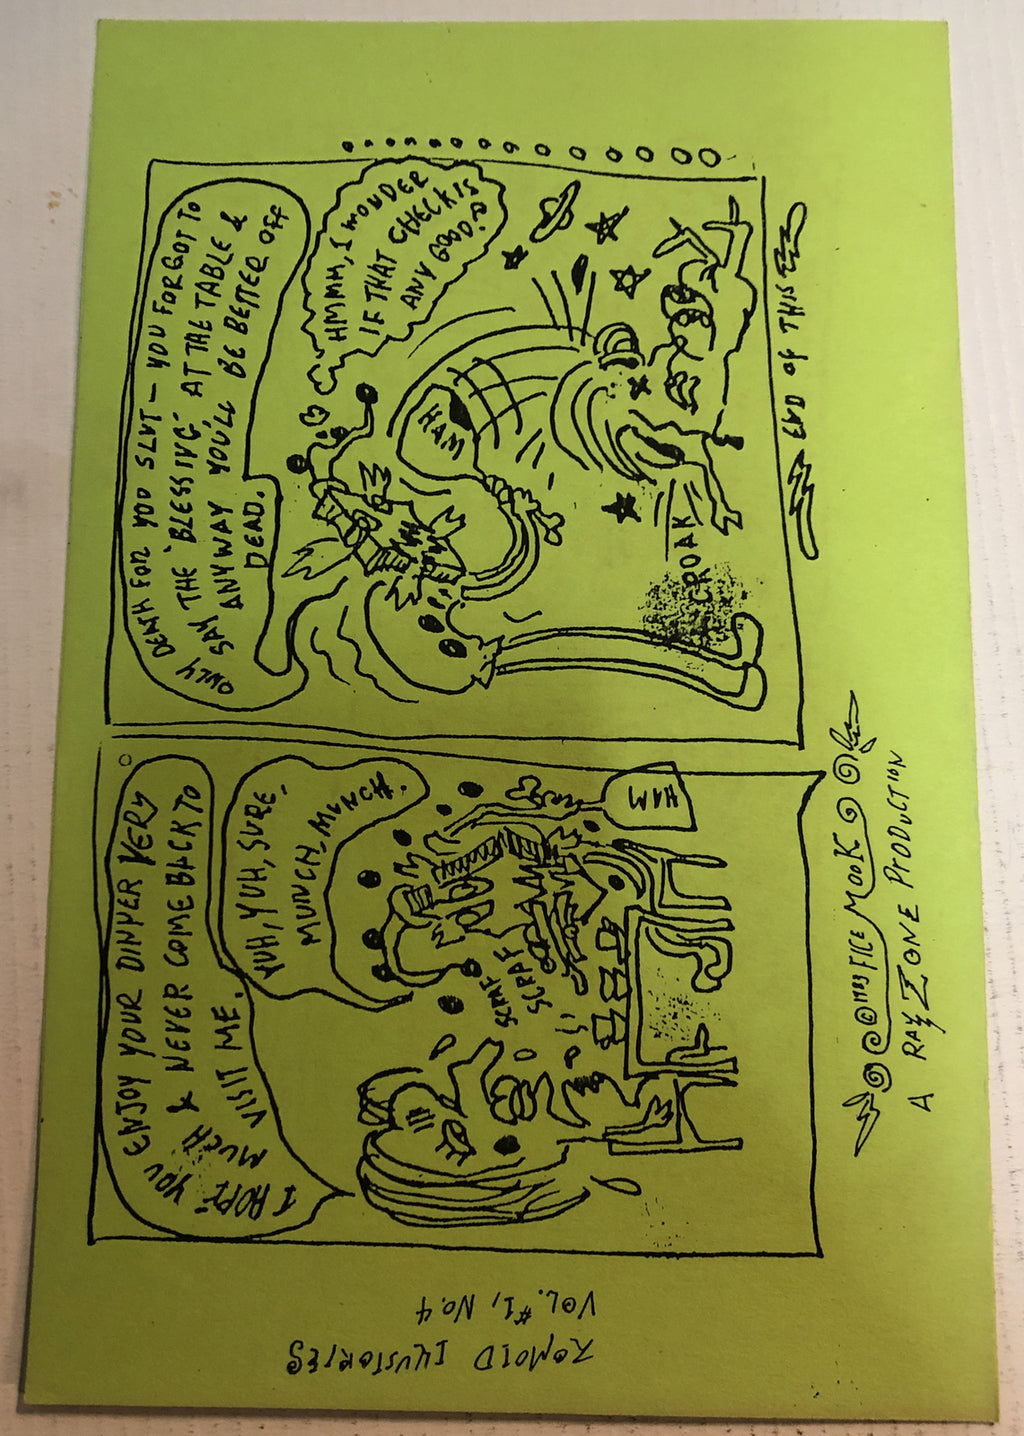 I HOPE
YOU ENJOY YOUR DINNER VERY
MUCH & NEVER COME BACK TO
VISIT ME.
YUH, YUH, SURE.
MUNCH, MUNCH.
SCRAPE
SCRAPE
HAM
DEATH FOR YOU SLUT — YOU FORGOT TO
ONLY SAY THE "BLESSING" AT THE TABLE &
ANYWAY YOU'LL BE BETTER OFF
DEAD.
HMMM, I WONDER
IF THAT CHECK IS
ANY GOOD?
HAM
CROAK
END OF THIS
© 1983 FILE MOOK
A RAY ZONE PRODUCTION
ZOMOID ILLUSTORIES
VOL. #1, NO. 4